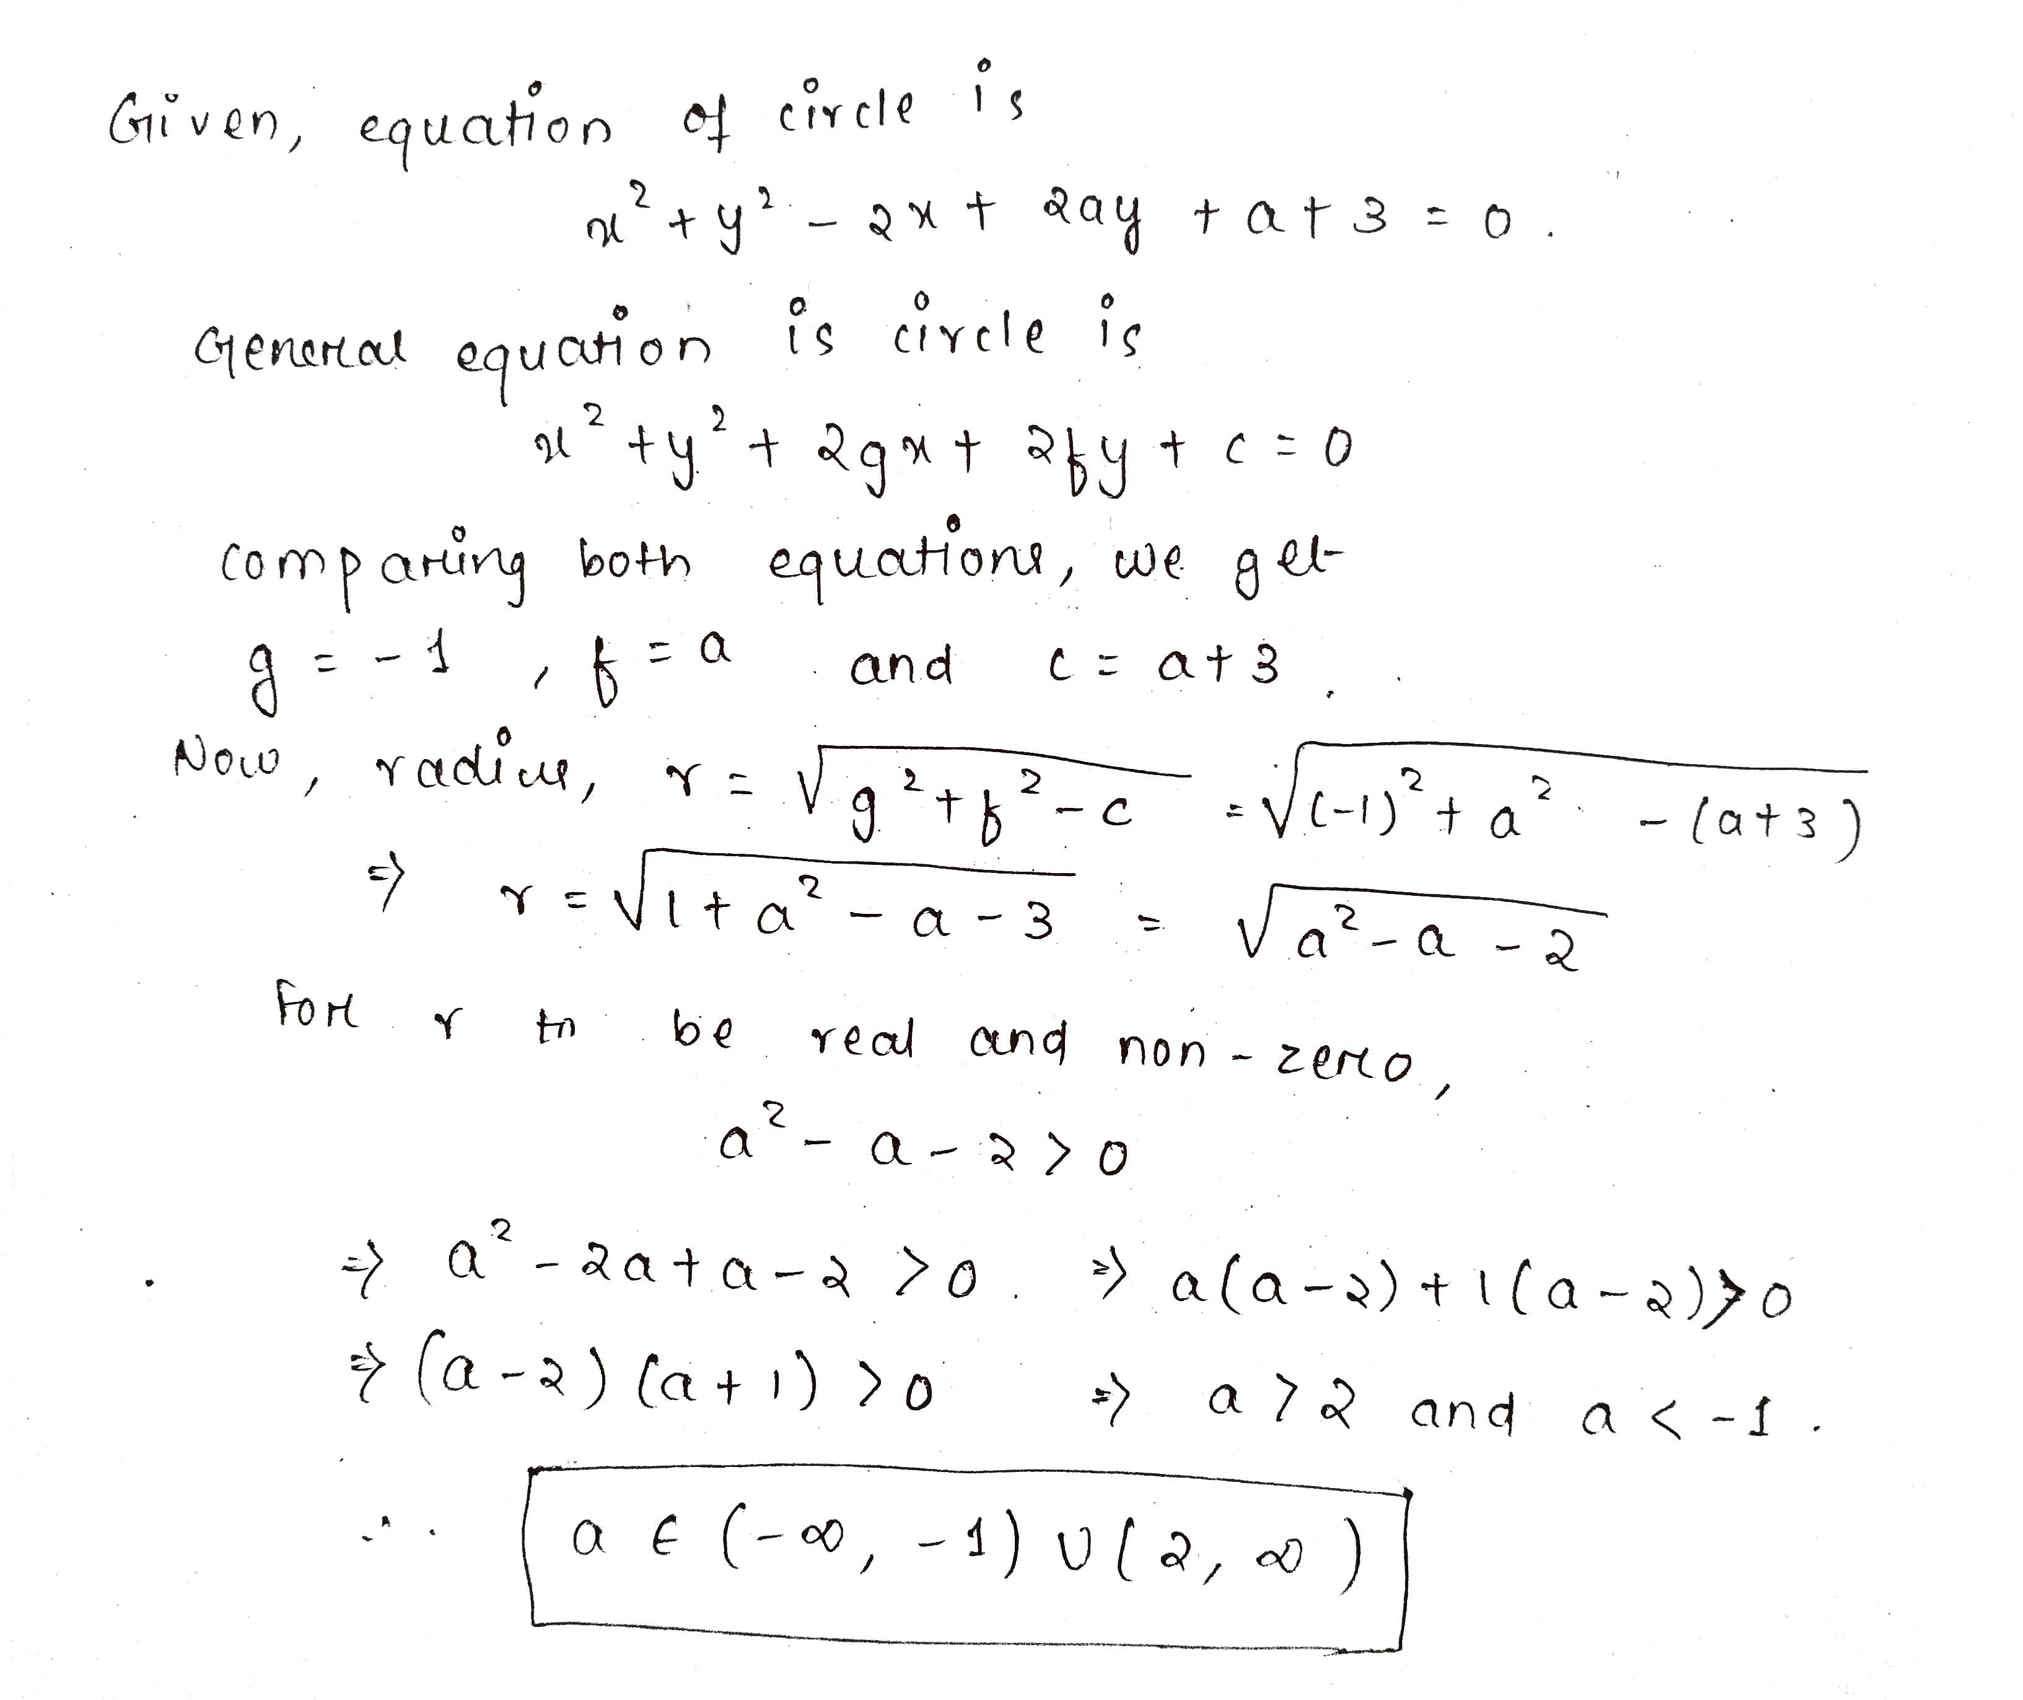 Given, equation of circle is
x² + y² - 2x + 2ay + a + 3 = 0.
General equation is circle is
x² + y² + 2gx + 2fy + c = 0
comparing both equations, we get
g = -1, f = a and c = a + 3.
Now, radius, r = √(g² + f² - c) = √((-1)² + a² - (a+3))
⇒ r = √(1 + a² - a - 3) = √(a² - a - 2)
For r to be real and non-zero,
a² - a - 2 > 0
⇒ a² - 2a + a - 2 > 0. ⇒ a(a-2) + 1(a-2) > 0
⇒ (a-2)(a+1) > 0 ⇒ a > 2 and a < -1.
∴ a ∈ (-∞, -1) ∪ (2, ∞)